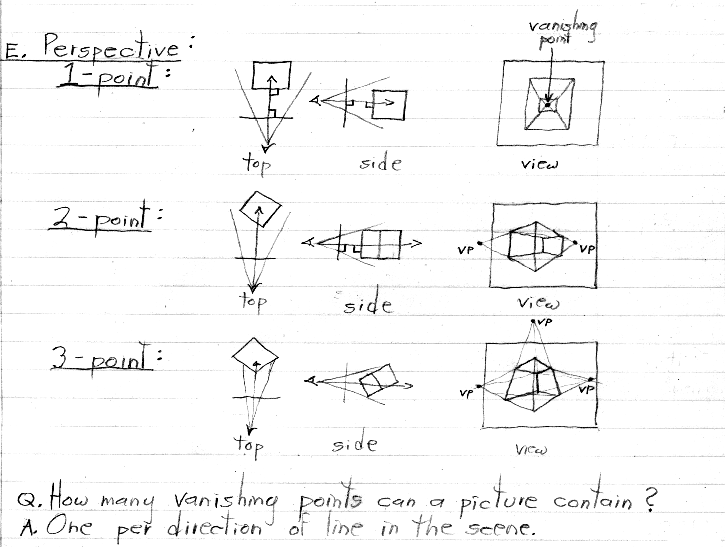 vanishing
point
E. Perspective:
1-point:
top
side
view
2-point:
VP
VP
top
side
view
VP
3-point:
VP
VP
top
side
view
Q. How many vanishing points can a picture contain?
A. One per direction of line in the scene.